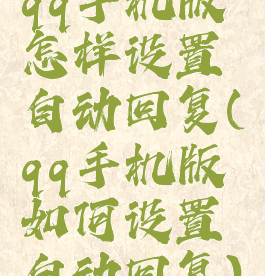 qq手机版
怎样设置
自动回复(
qq手机版
如何设置
自动回复)